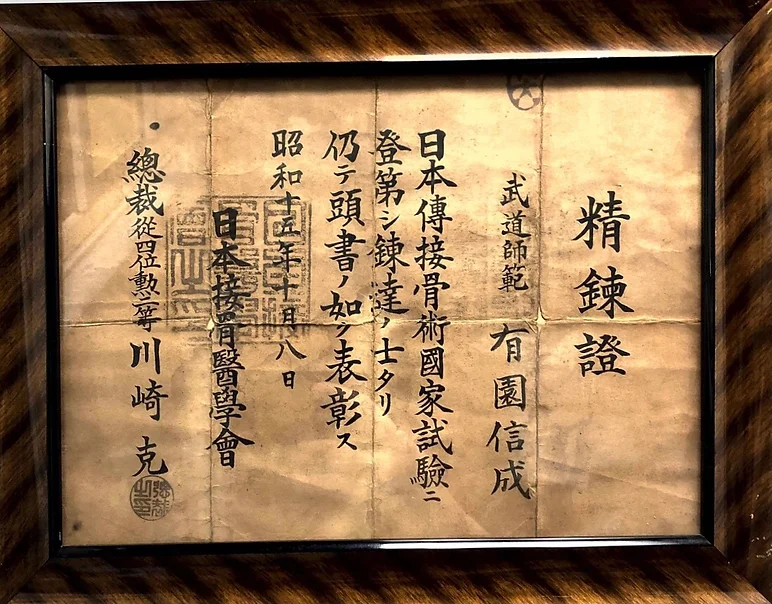 精鍊證
武道師範 有園信成
日本傳接骨術國家試驗ニ
登第シ鍊達ノ士タリ
仍テ頭書ノ如ク表彰ス
昭和十五年十月八日
日本接骨醫學會
總裁從四位勲二等川崎克